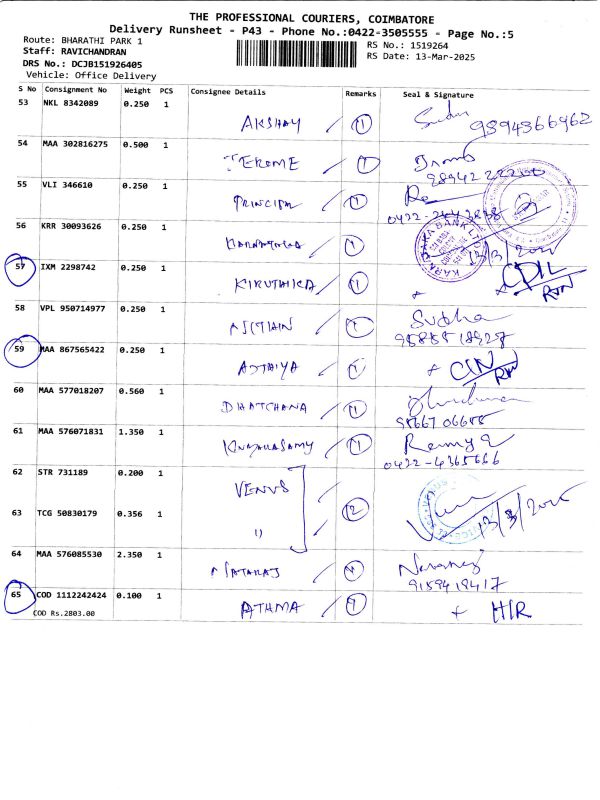 THE PROFESSIONAL COURIERS, COIMBATORE
Delivery Runsheet - P43 - Phone No.:0422-3505555 - Page No.:5
Route: BHARATHI PARK 1
Staff: RAVICHANDRAN
DRS No.: DCJB151926405
Vehicle: Office Delivery
RS No.: 1519264
RS Date: 13-Mar-2025
S No Consignment No Weight PCS Consignee Details Remarks Seal & Signature
53 NKL 8342089 0.250 1 AKSHAY 1
54 MAA 302816275 0.500 1 JEROME 1
55 VLI 346610 0.250 1 PRINCIPAL 1
56 KRR 30093626 0.250 1 1
57 IXM 2298742 0.250 1 KIRUTHIKA + CDIL
58 VPL 950714977 0.250 1 1 Subha
59 MAA 867565422 0.250 1 1 +
60 MAA 577018207 0.560 1 DHATCHANA 1
61 MAA 576071831 1.350 1 1 0422-4365666
62 STR 731189 0.200 1 VENUS 2
63 TCG 50830179 0.356 1 " 13/3/2025
64 MAA 576085530 2.350 1 NATARAJ 9159419417
65 COD 1112242424 0.100 1 ATHMA 1 + HIR
COD Rs.2803.00